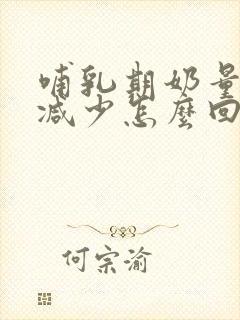 哺乳期奶量
减少怎麽回
何宗渝